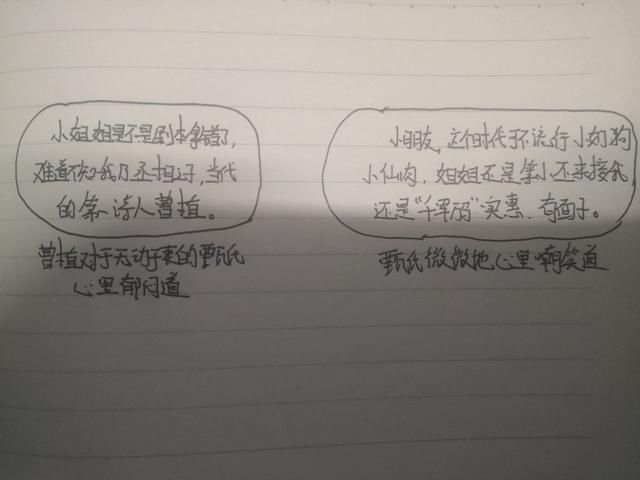 小姐姐是不是剧本拿错了,
难道不知我乃丞相之子,当代
的第一诗人曹植。
曹植对于无动于衷的甄氏
心里郁闷道
小朋友,这个时代不流行小奶狗
小仙肉,姐姐还是等小丕来接我,
还是“千军万”实惠,有面子。
甄氏微微地心里嘲笑道